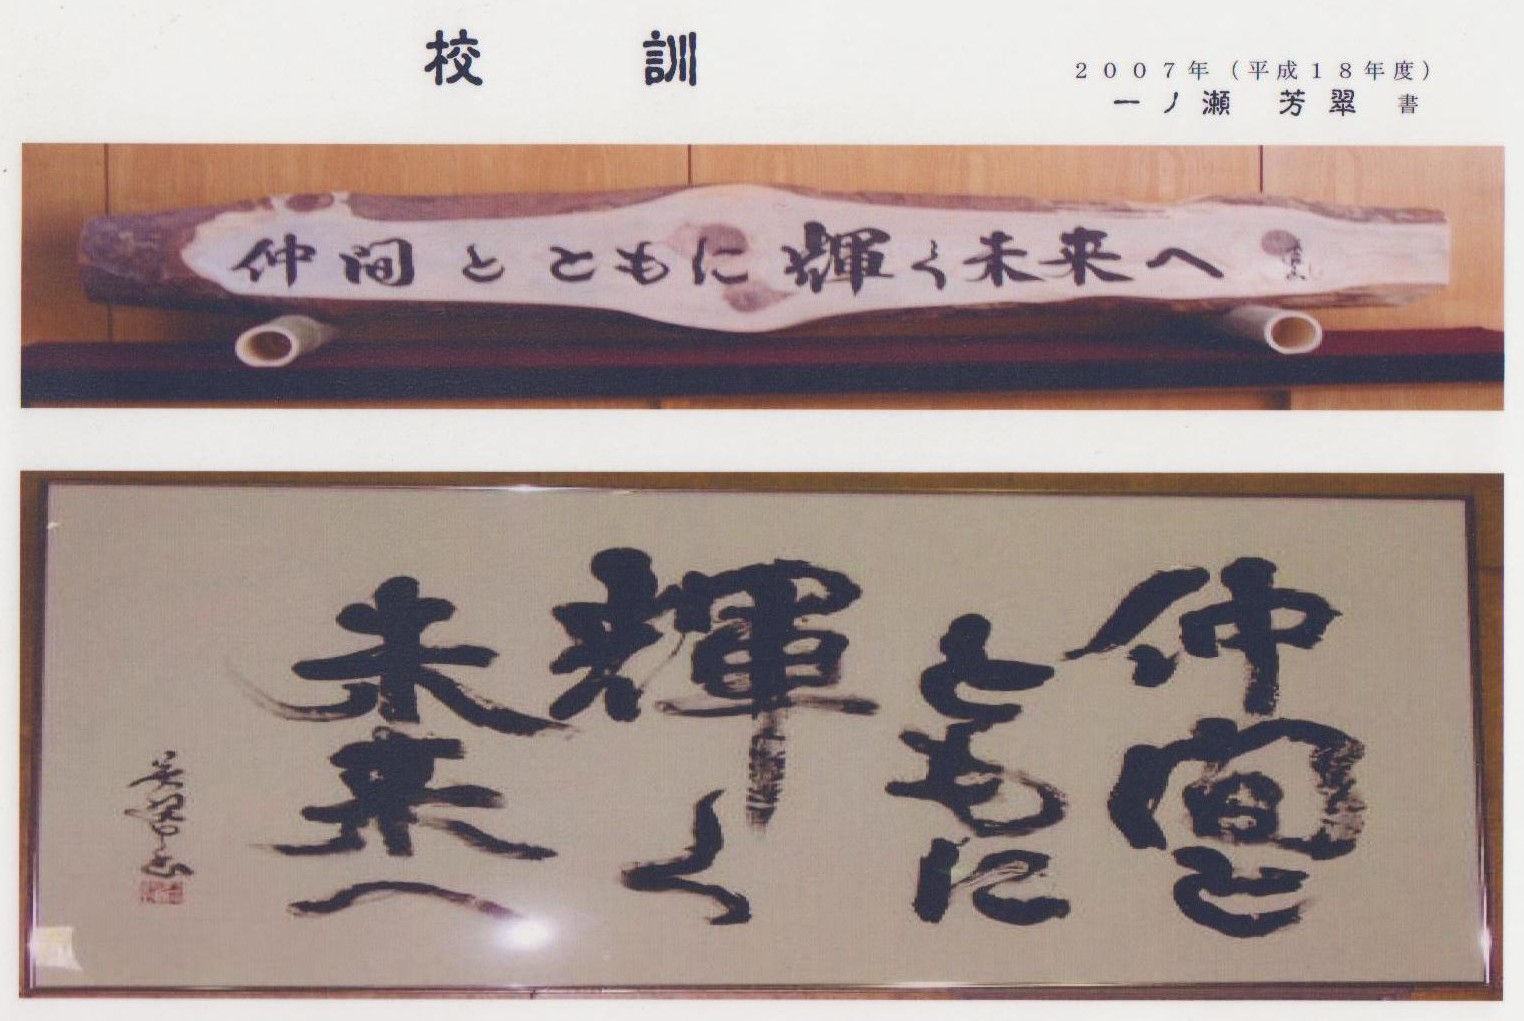 校訓
2007年(平成18年度)
一ノ瀬 芳翠 書
仲間とともに輝く未来へ
仲間と
ともに
輝く
未来へ